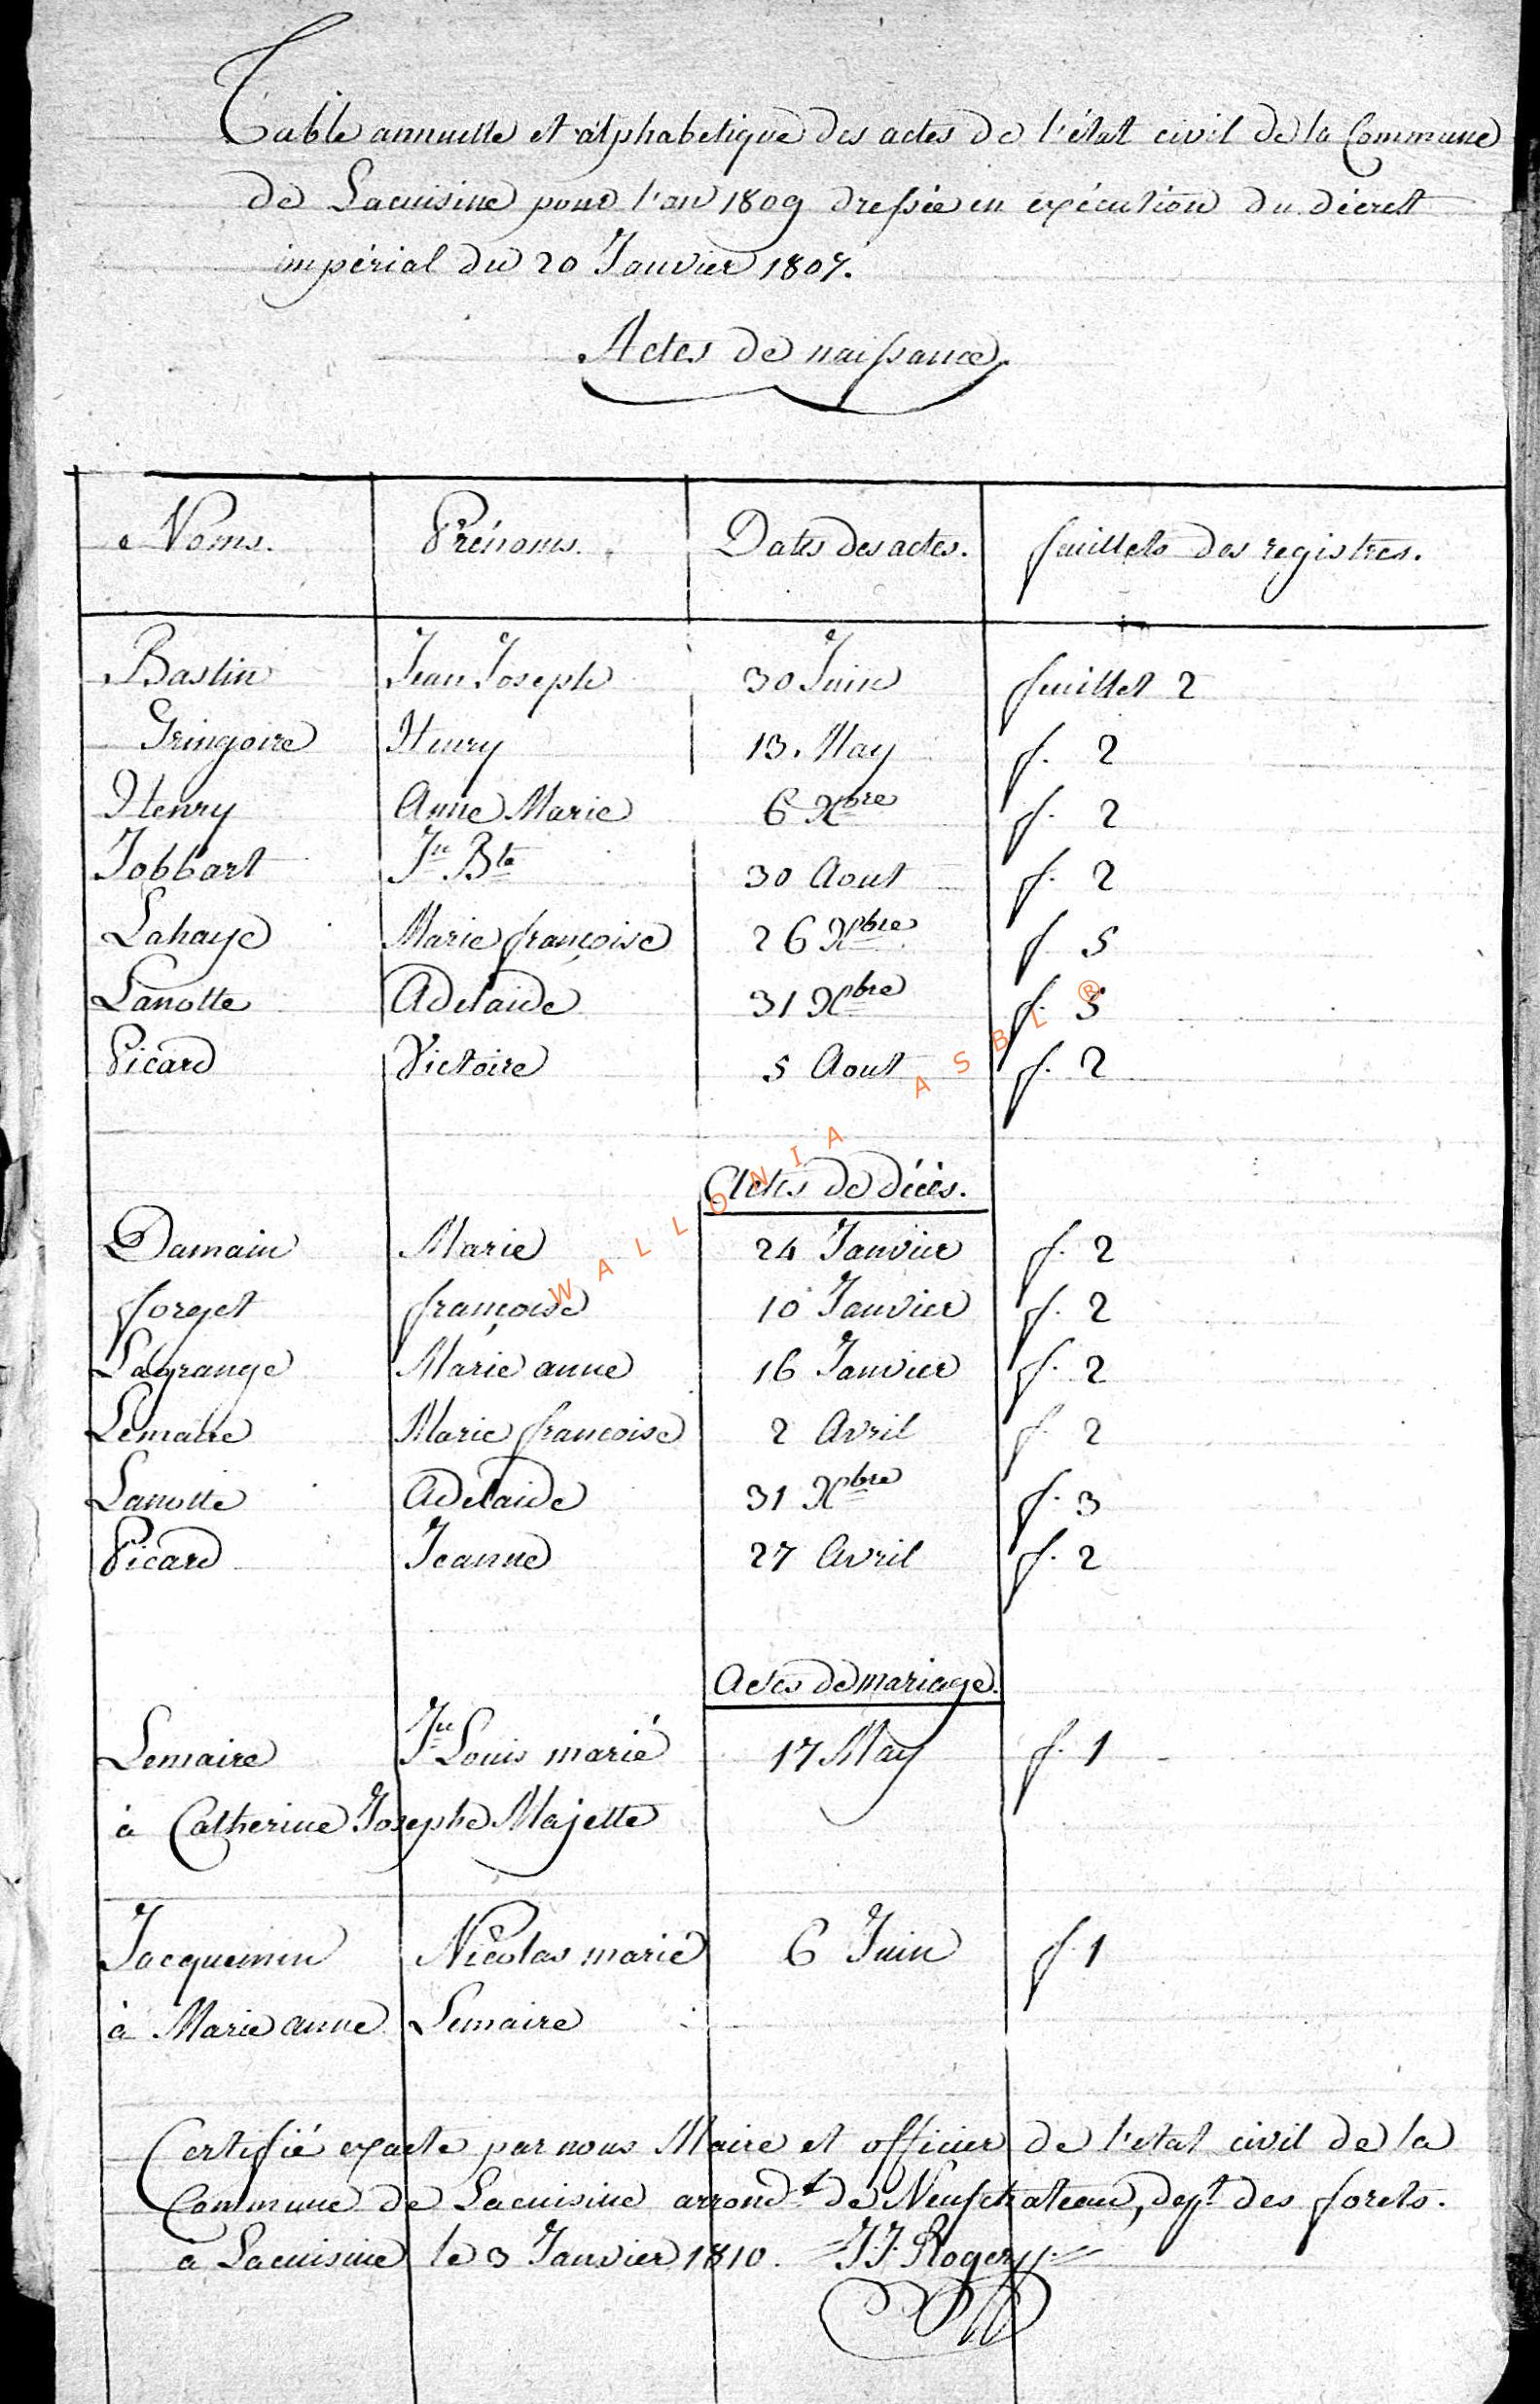 Table annuelle et alphabetique des actes de l'état civil de la Commune
de Lacuisine pour l'an 1809 dressée en exécution du décret
impérial du 20 Janvier 1807.
Actes de naissance.
Noms. Prénoms. Dates des actes. feuillets des registres.
Bastin Jean Joseph 30 Juin feuillet 2
Gringoire Henry 13. May f. 2
Henry Anne Marie 6 Xbre f. 2
Jobbart Jn Bte 30 Aout f. 2
Lahaye Marie françoise 26 Xbre f 5
Lanotte Adelaide 31 Xbre f. 5
Picard Victoire 5 Aout f. 2
WALLONIA ASBL ®
Actes de décès.
Damain Marie 24 Janvier f. 2
forget françoise 10 Janvier f. 2
Lagrange Marie anne 16 Janvier f. 2
Lemaire Marie francoise 2 Avril f. 2
Lanotte Adelaide 31 Xbre f. 3
Picard Jeanne 27 Avril f. 2
Actes de mariage.
Lemaire Jn Louis marié 17 May f. 1
à Catherine Josephe Majette
Jacquemin Nicolas marié 6 Juin f. 1
à Marie anne Lemaire
Certifié exacte par nous Maire et officier de l'etat civil de la
Commune de Lacuisine arrondt de Neufchateau, dept des forets.
a Lacuisine le 3 Janvier 1810. J. J. Roger